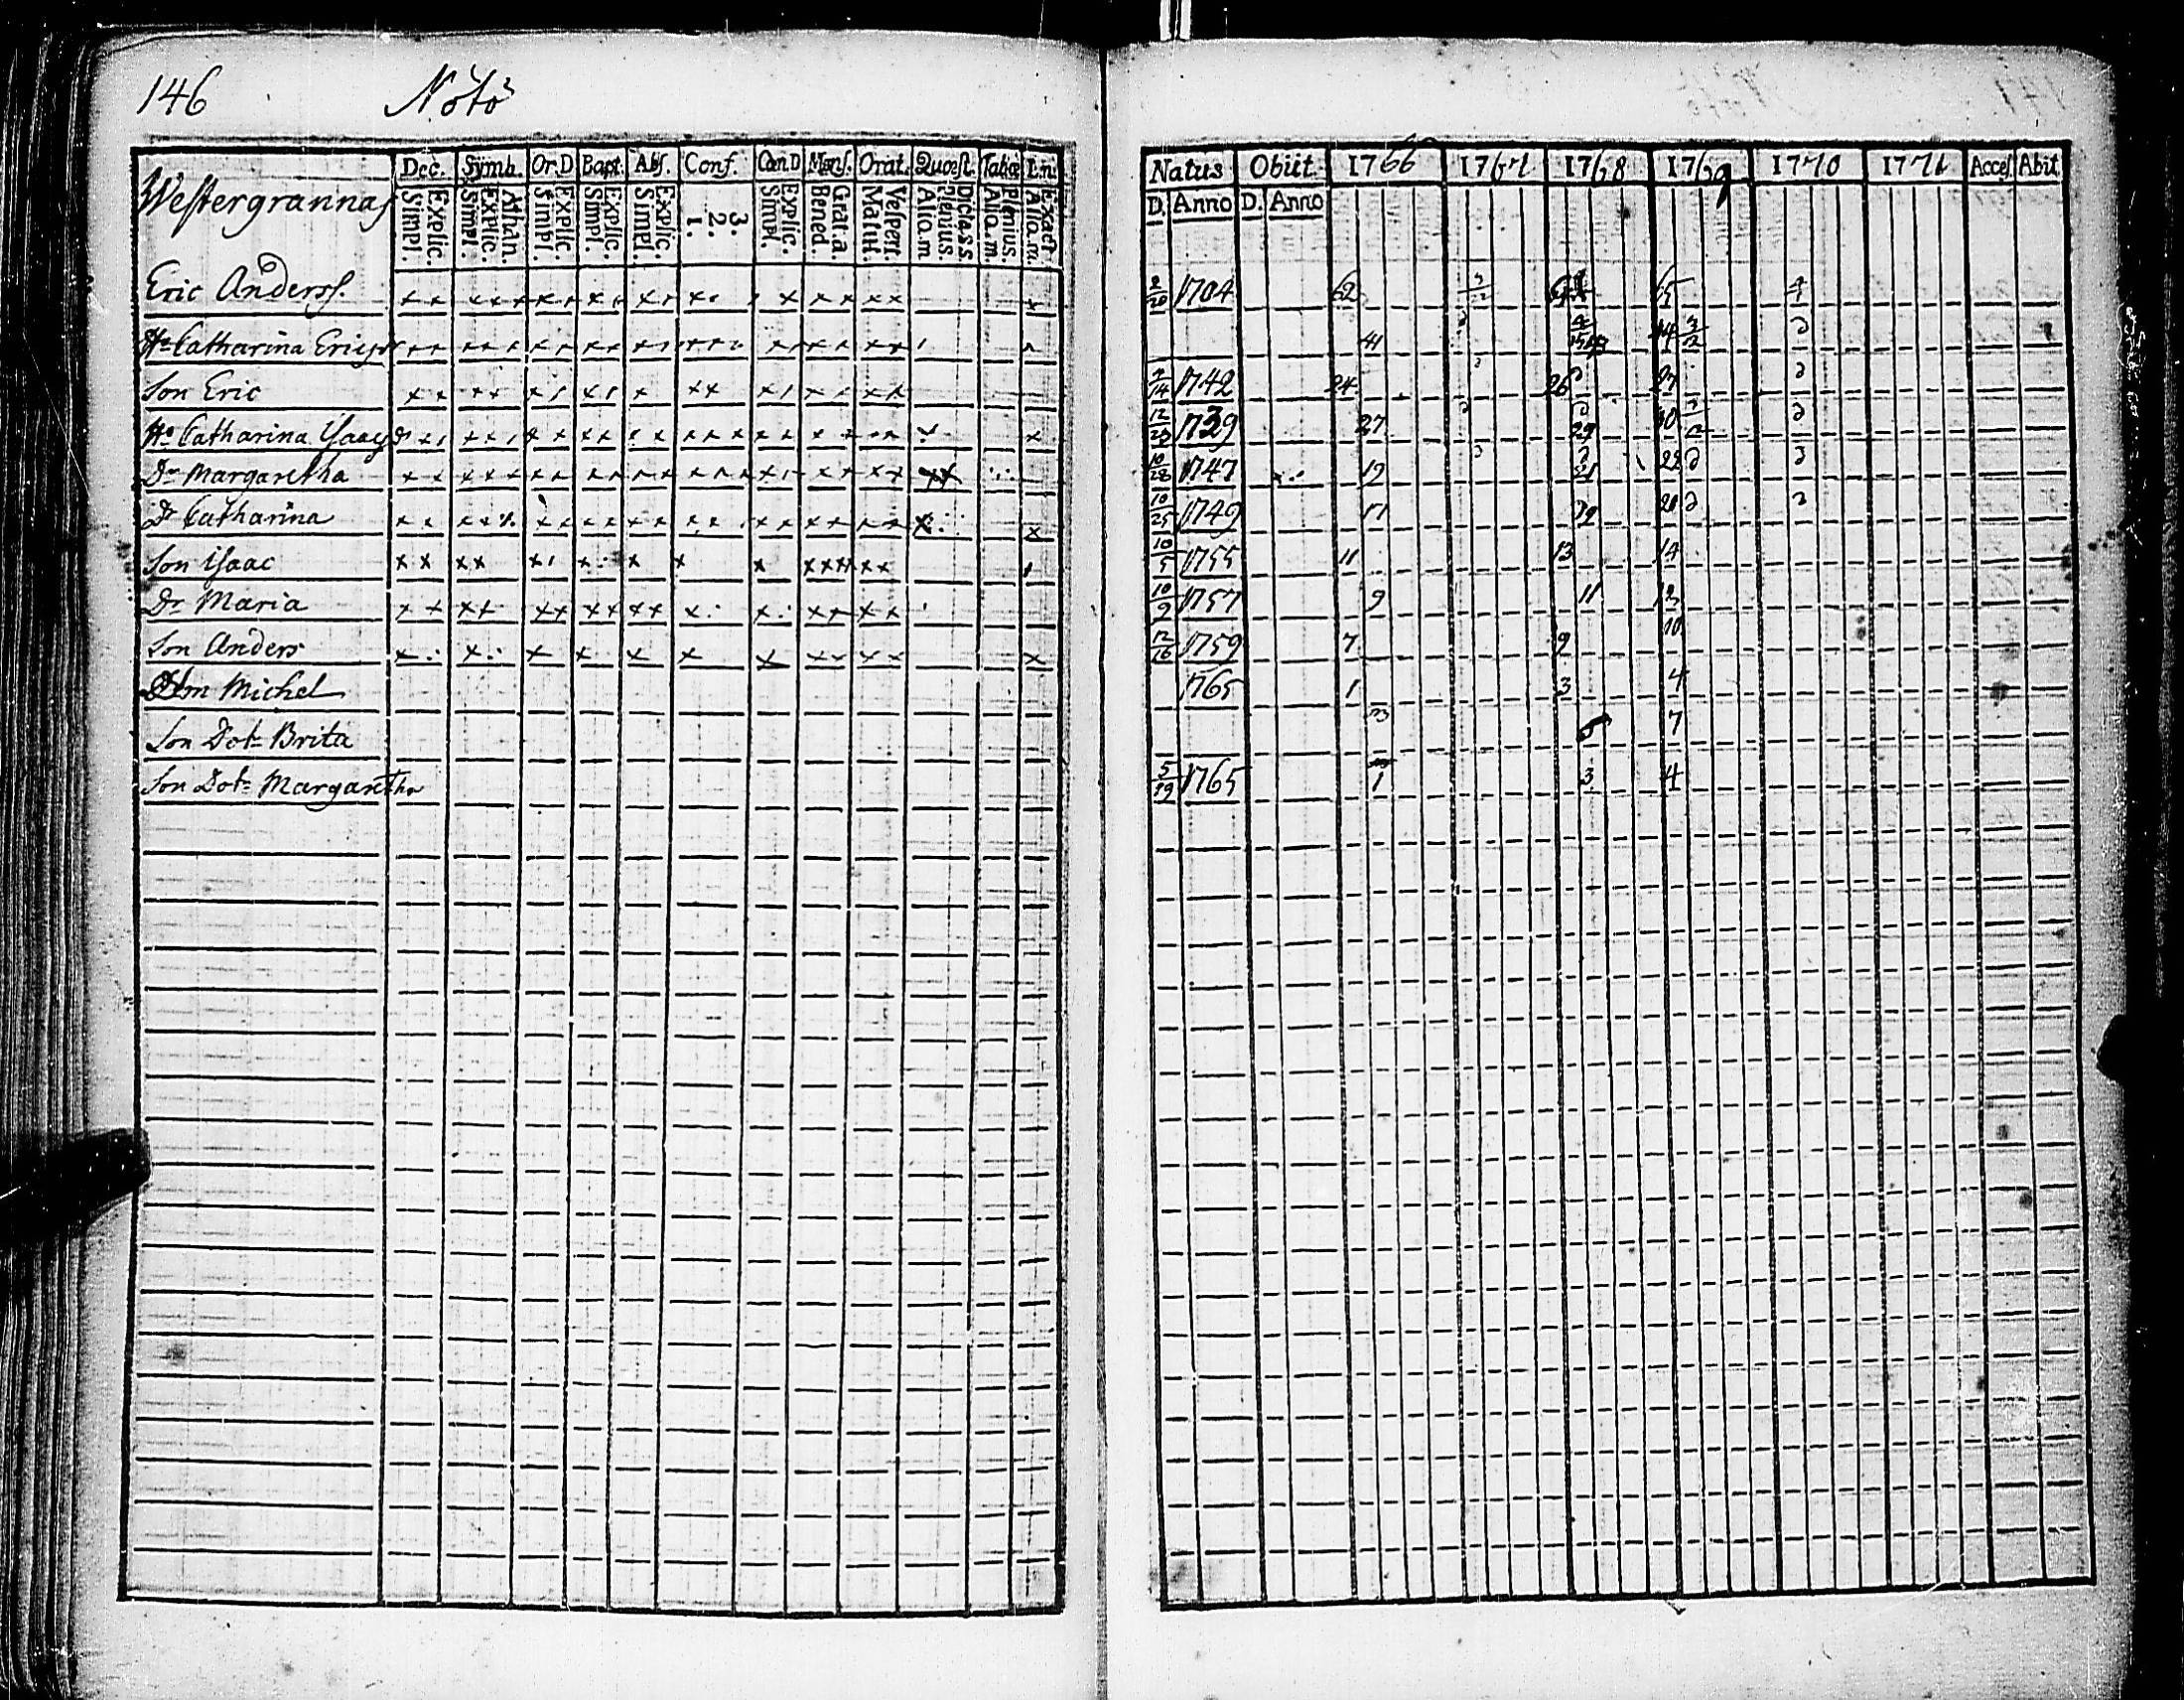 146 Nötö
Dec. Symb. Or.D Bapt. Abs. Conf. Cœn.D Mens. Orat. Quœst. Tabœ
Westergrannas
Simpl. Explic. Simpl. Explic. Athan. Simpl. Explic. Simpl. Explic. Simpl. Explic. 1. 2. 3. Simpl. Explic. Bened. Grat.a. Matut. Vespert. Aliq.m Plenius. Dict.a s.s. Aliq.m. Plenius. Aliq.m. Exact
Eric Anderss.
Hu Catharina Ericsdr
Son Eric
Hu Catharina Isaacsdr
Dr Margaretha
Dr Catharina
Son Isaac
Dr Maria
Son Anders
Son Michel
Son Dotr Brita
Son Dotr Margaretha
Natus Obiit 1766 1767 1768 1769 1770 1771 Acces. Abit
D. Anno D. Anno
2/20 1704 62 65
41
2/14 1742 24 26 27
12/23 1739 27 29 30
10/28 1747 19 21 22
10/25 1749 17 19 20
10/5 1755 11 13 14
10/9 1757 9 11 12
12/16 1759 7 9 10
1765 1 3 4
3 7
5/19 1765 1 3 4